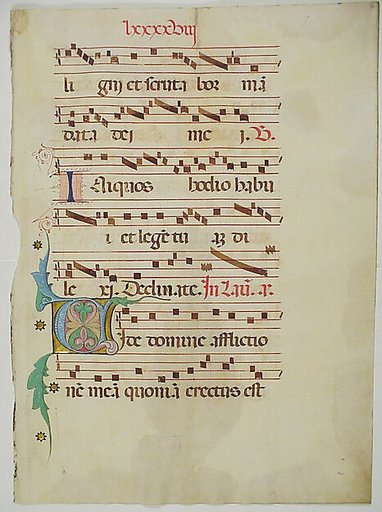 lxxxxviij
li gni et scruta bor mā
data dei me i. V.
Iniquos hodio habu
i et legē tu ā di
le xj. Declinate. In Lau. a.
Uide domine afflictio
nē meā quoniā erectus est